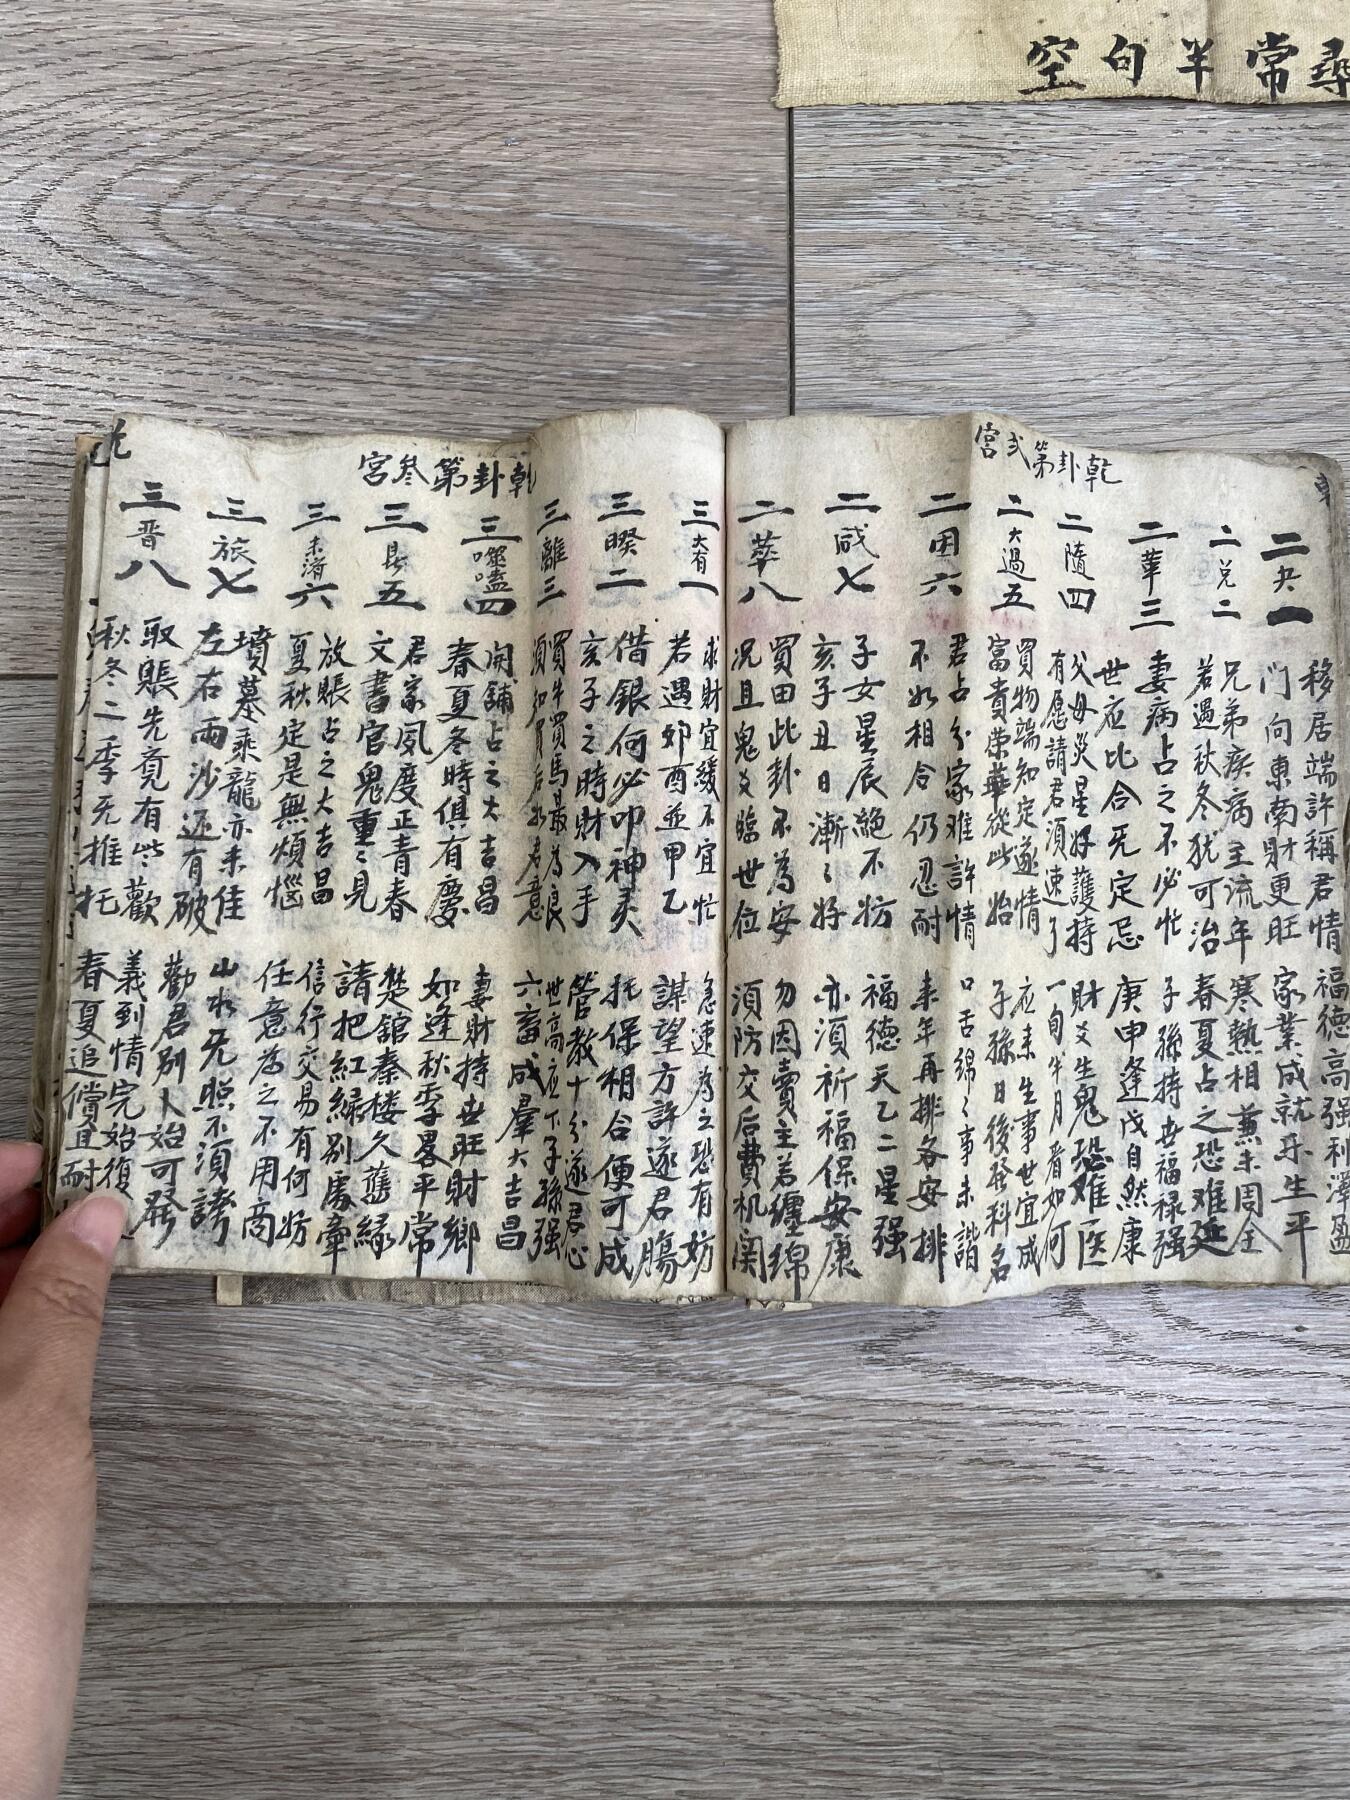 空句半常尋
乾卦第弍宮
二夬一
移居端許稱君情 福德高强利澤盈
门向東南財更旺 家業成就樂生平
二兑二
兄弟疾病主流年 寒熱相兼未周全
若遇秋冬犹可治 春夏占之恐难延
二革三
妻病占之不必忙 子孫持世福禄强
世应比合旡定忌 庚申逢戊自然康
二隨四
父母災星好護持 財爻生鬼恐难医
有愿請君須速了 一旬半月看如何
二大過五
買物端知定遂情 应来生事世宜成
富貴荣華從此始 子孫日後發科名
二困六
君占分家难許情 口舌綿々事未諧
不如相合仍忍耐 来年再排各安排
二咸七
子女星辰絶不妨 福德天乙二星强
亥子丑日漸々好 亦須祈福保安康
二萃八
買田此卦不為安 勿因賣主若纏綿
况且鬼爻臨世位 須防交后費机関
乾卦第叁宮
三大有一
求財宜緩不宜忙 急速為之恐有妨
若遇卯酉並甲乙 謀望方許遂君腸
三睽二
借銀何必叩神灵 托保相合便可成
亥子之時財入手 管教十分遂君心
三離三
買牛買馬最為良 世高应下子孫强
須知買后如君意 六畜成羣大吉昌
三噬嗑四
開舖占之大吉昌 妻財持世旺財鄉
春夏冬時俱有慶 如逢秋季畧平常
三鼎五
君家風度正青春 楚舘秦楼久舊緣
文書官鬼重々見 請把紅緣别處牵
三未濟六
放賬占之大吉昌 信行交易有何妨
夏秋定是無煩惱 任意為之不用商
三旅七
墳墓乘龍亦未佳 山水旡照不須誇
左右兩沙还有破 勸君别卜始可發
三晋八
取賬先竟有些歡 義到情完始復
秋冬二季旡推托 春夏追償宜耐